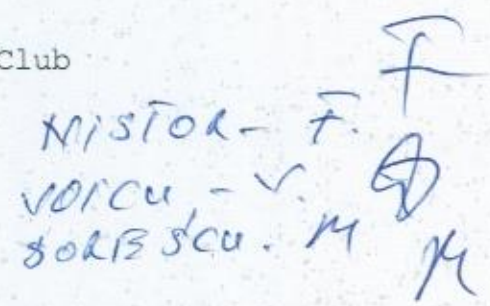 Club
NISTOR - F.
VOICU, - V.
SORESCU. M